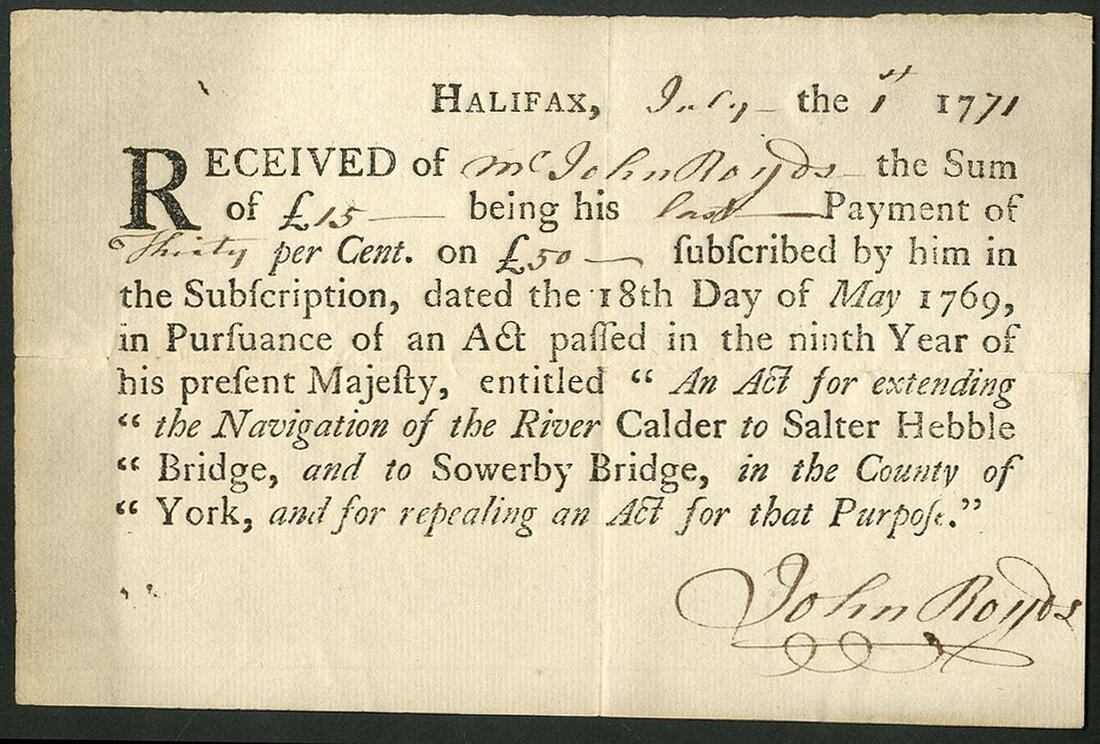 HALIFAX, July the 1st 1771
RECEIVED of Mr John Royds the Sum
of £15 — being his last Payment of
Thirty per Cent. on £50 — ſubſcribed by him in
the Subſcription, dated the 18th Day of May 1769,
in Purſuance of an Act paſſed in the ninth Year of
his preſent Majeſty, entitled “ An Act for extending
“ the Navigation of the River Calder to Salter Hebble
“ Bridge, and to Sowerby Bridge, in the County of
“ York, and for repealing an Act for that Purpoſe.”
John Royds